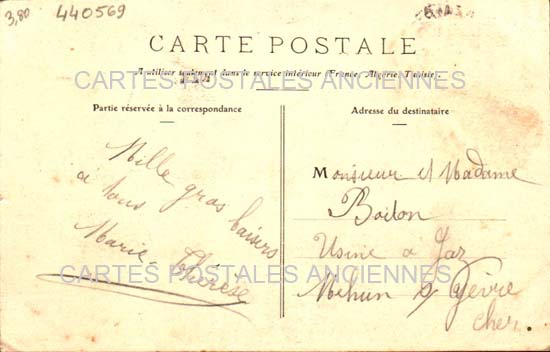 3,80 440569
CARTE POSTALE
A utiliser seulement dans le service intérieur (France, Algérie, Tunisie).
CARTES POSTALES ANCIENNES
Partie réservée à la correspondance
Adresse du destinataire
Mille gros baisers
a tous
Marie-Thérèse
Monsieur et Madame
Boiton
Usine a Gaz
Mehun s/ Yèvre
Cher
CARTES POSTALES ANCIENNES